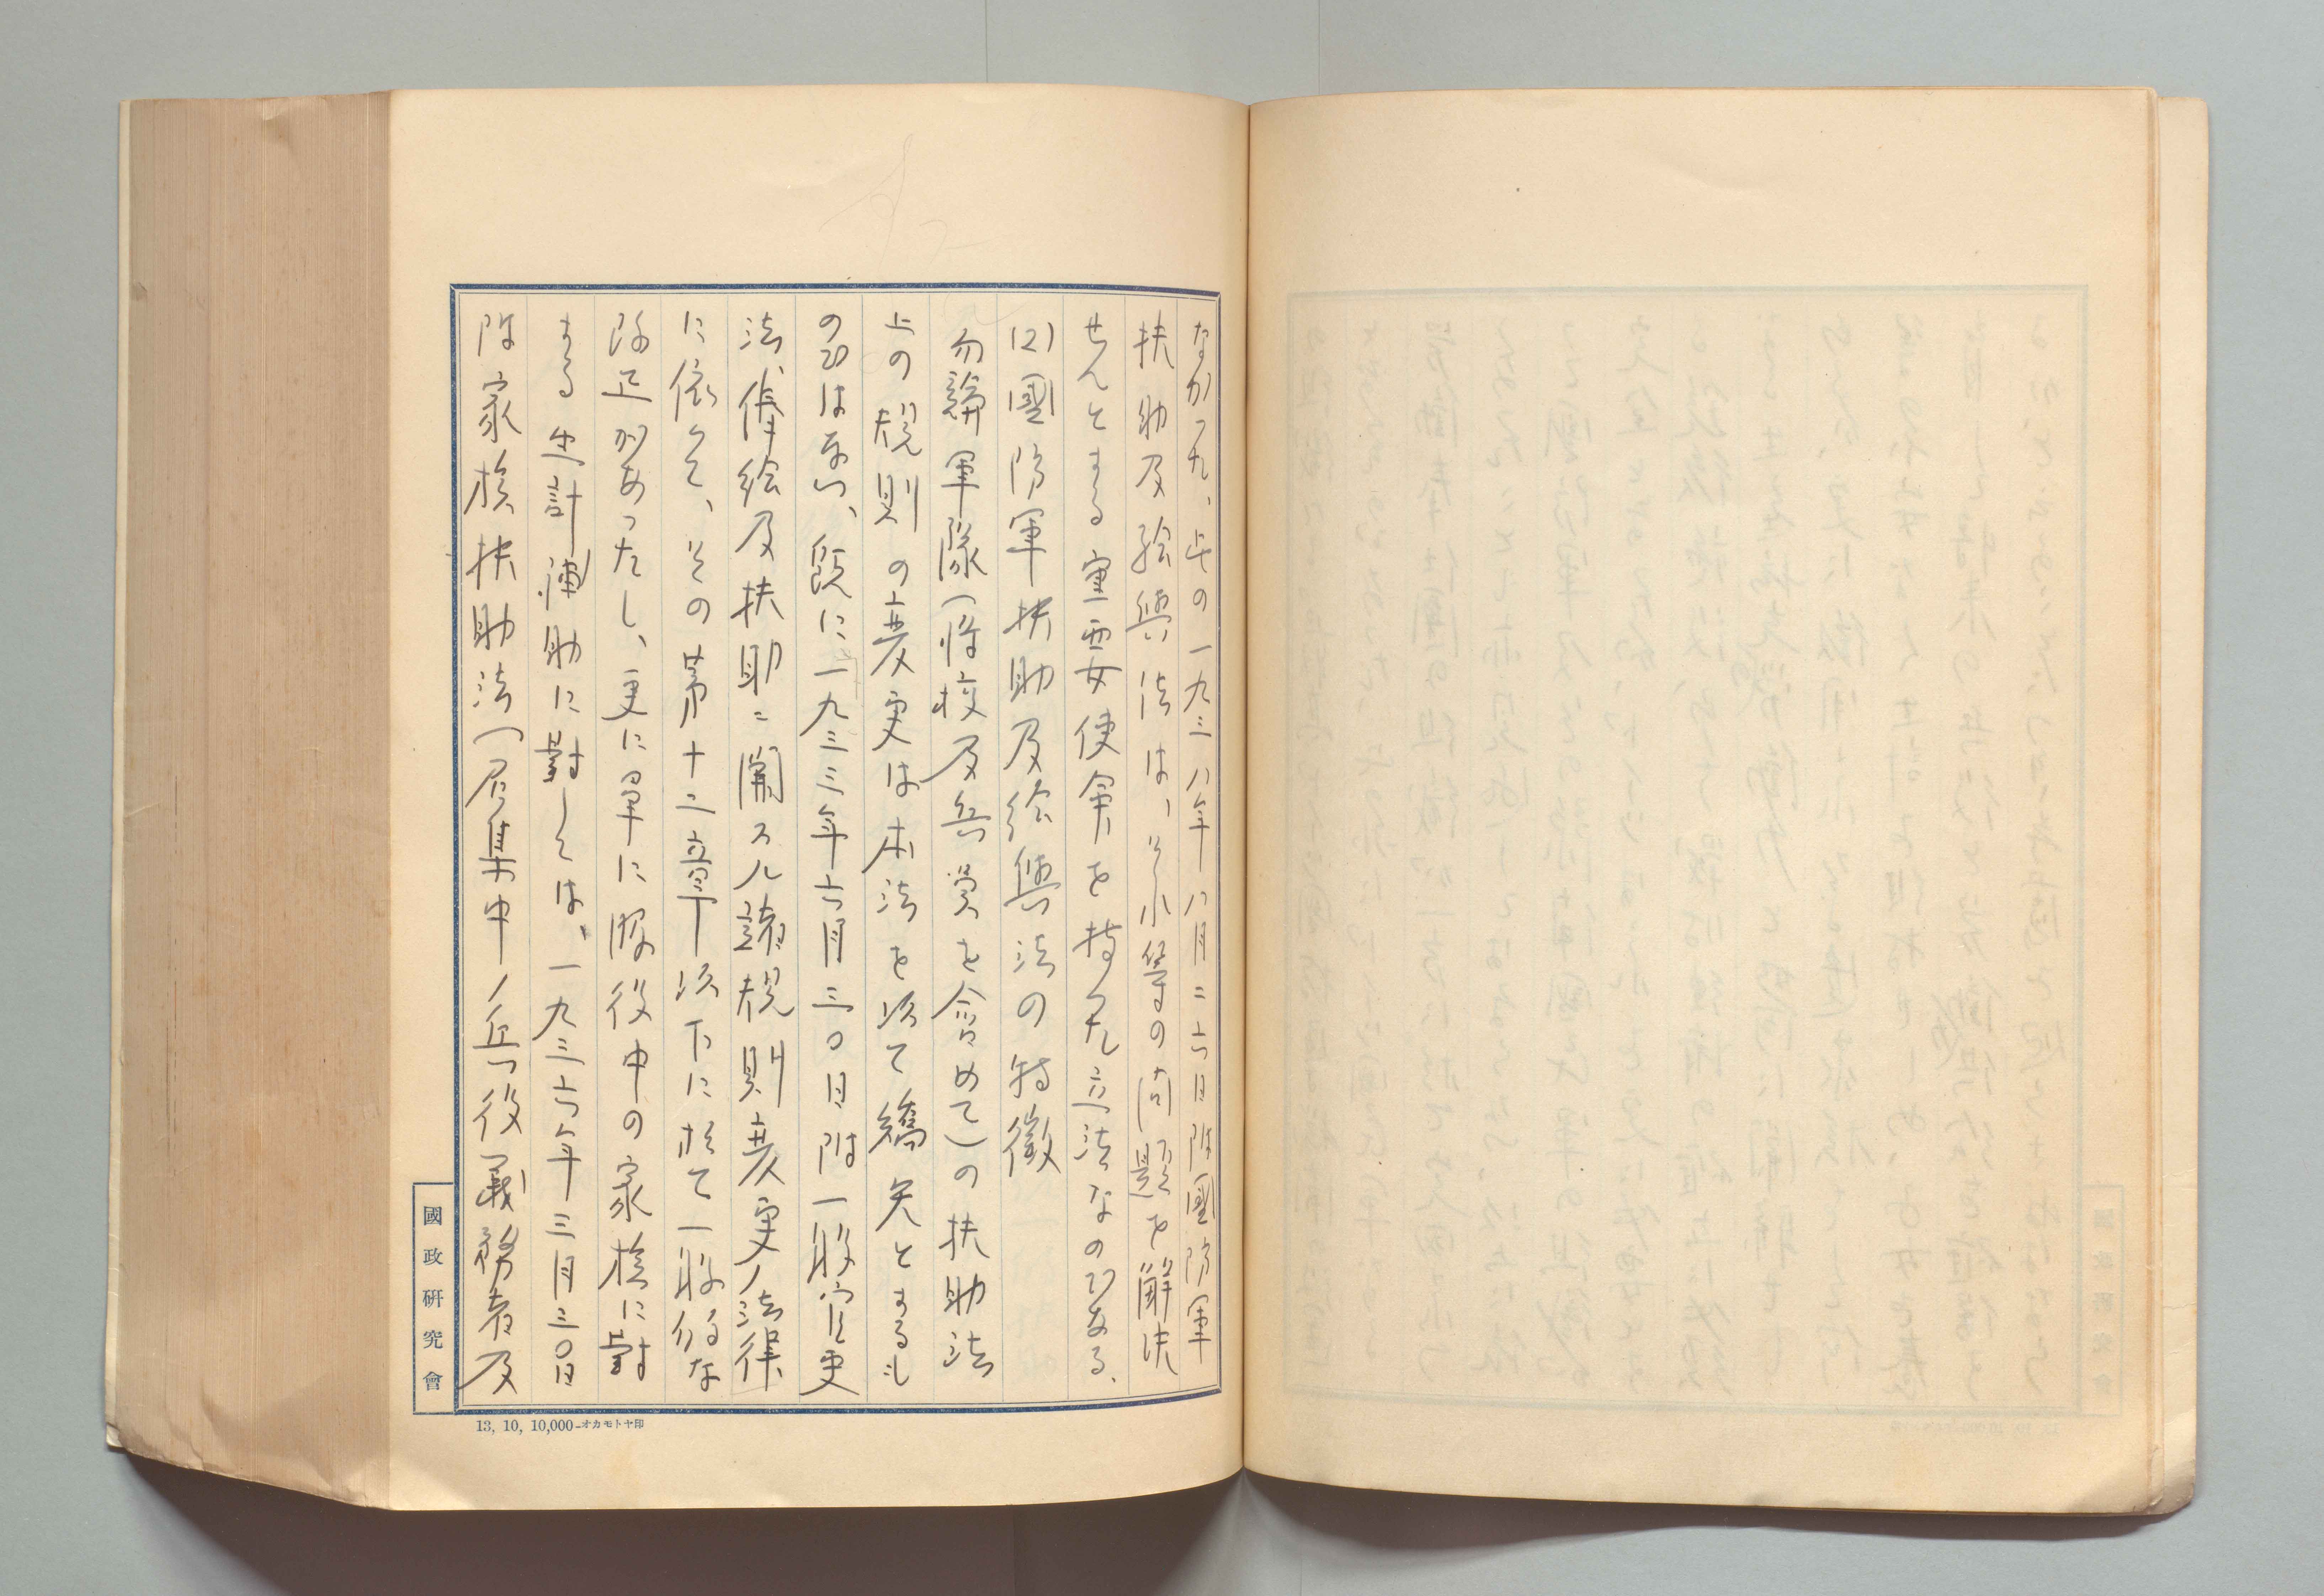 なかつた、此の一九三八年八月二六日附國防軍
扶助及給與法は、それ等の問題を解決
せんとする重要使命を持つた立法なのである.
(2)國防軍扶助及給與法の特徴
勿論軍隊(將校及兵員を含めて)の扶助法
上の規則の變更は本法を以て嚆矢とするも
のでは無い、既に一九三三年六月三〇日附一般官吏
法、俸給及扶助ニ關スル諸規則變更ノ法律
に依つて、その第十二章以下に於て一般的な
改正があつたし、更に軍に服役中の家族に對
する生計補助に對しては、一九三六年三月三〇日
附家族扶助法(召集中ノ兵役義務者及
國政研究會
13, 10, 10,000—オカモトヤ印